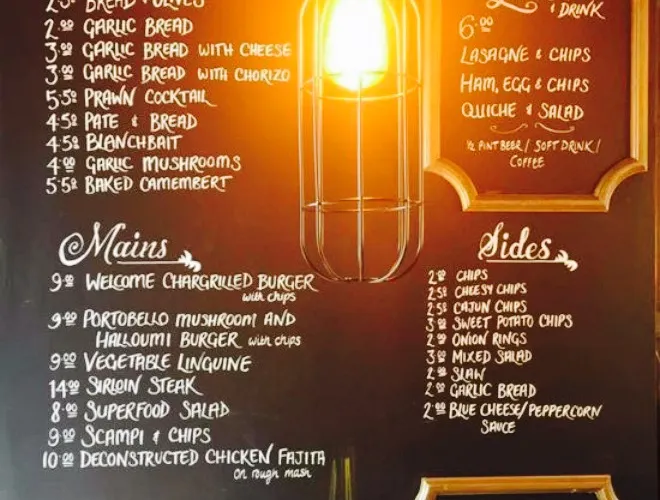 2.50 BREAD & OLIVES
2.00 GARLIC BREAD
3.00 GARLIC BREAD WITH CHEESE
3.00 GARLIC BREAD WITH CHORIZO
5.50 PRAWN COCKTAIL
4.50 PATE & BREAD
4.50 BLANCHBAIT
4.00 GARLIC MUSHROOMS
5.50 BAKED CAMEMBERT
& DRINK
6.00
LASAGNE & CHIPS
HAM, EGG & CHIPS
QUICHE & SALAD
½ PINT BEER / SOFT DRINK /
COFFEE
Mains
9.00 WELCOME CHARGRILLED BURGER
with chips
9.00 PORTOBELLO MUSHROOM AND
HALLOUMI BURGER with chips
9.00 VEGETABLE LINGUINE
14.00 SIRLOIN STEAK
8.00 SUPERFOOD SALAD
9.00 SCAMPI & CHIPS
10.00 DECONSTRUCTED CHICKEN FAJITA
on rough mash
Sides
2.00 CHIPS
2.50 CHEESY CHIPS
2.50 CAJUN CHIPS
3.00 SWEET POTATO CHIPS
2.00 ONION RINGS
3.00 MIXED SALAD
2.00 SLAW
2.00 GARLIC BREAD
2.00 BLUE CHEESE/PEPPERCORN
SAUCE